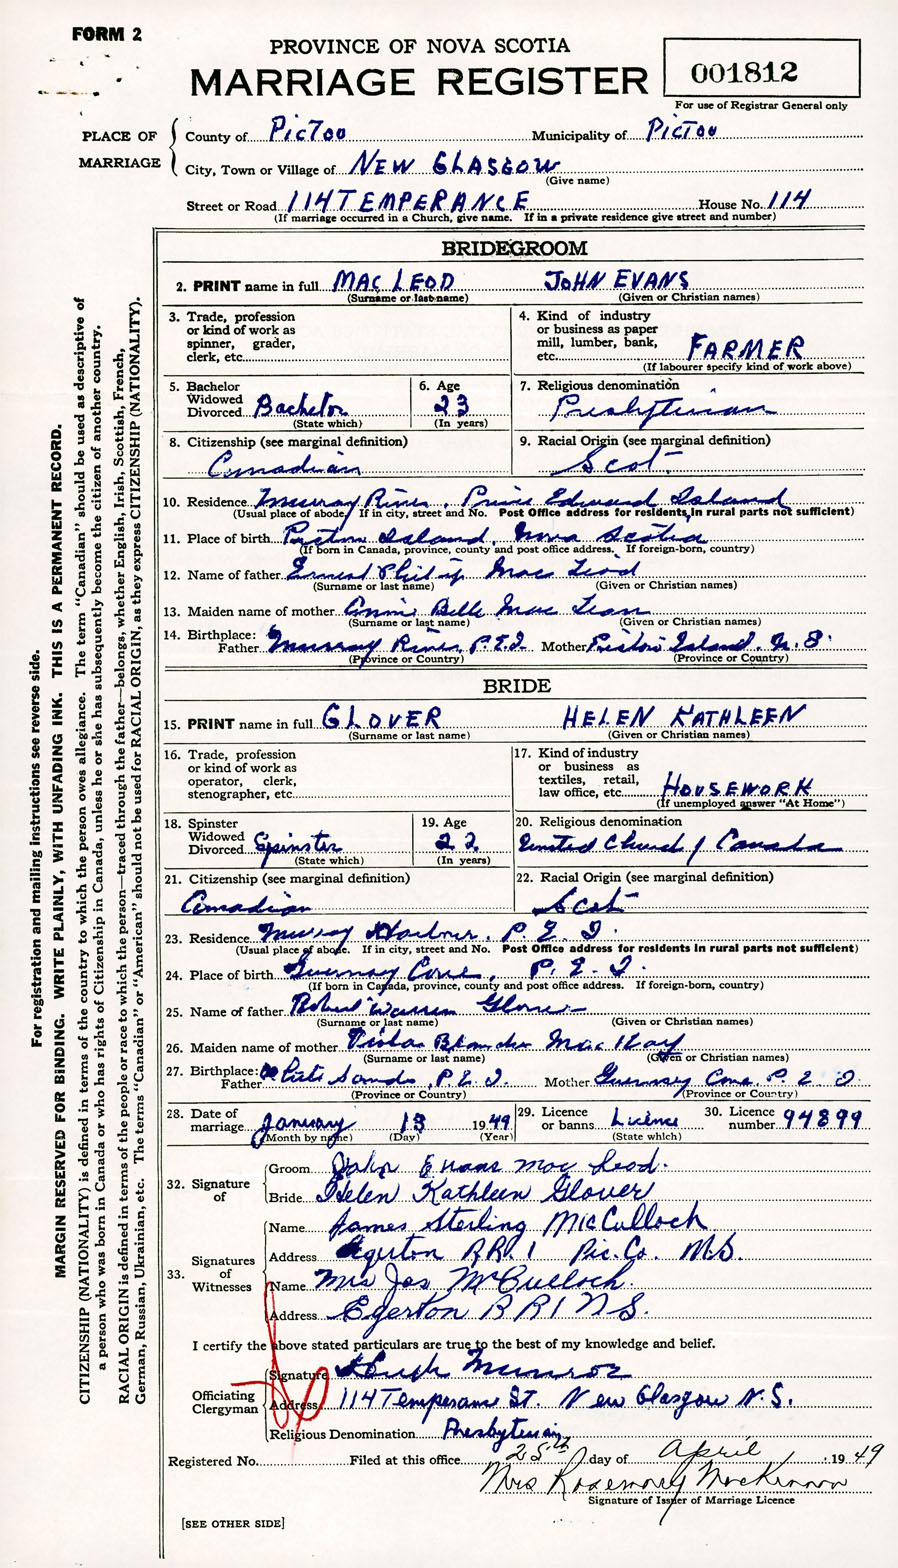 FORM 2
PROVINCE OF NOVA SCOTIA
MARRIAGE REGISTER
001812
For use of Registrar General only
PLACE OF MARRIAGE
County of PicTou Municipality of PicTou
City, Town or Village of NEW GLASGOW
(Give name)
Street or Road 114 TEMPERANCE House No. 114
(If marriage occurred in a Church, give name. If in a private residence give street and number)
BRIDEGROOM
2. PRINT name in full MAC LEOD JOHN EVANS
(Surname or last name) (Given or Christian names)
3. Trade, profession or kind of work as spinner, grader, clerk, etc.
4. Kind of industry or business as paper mill, lumber, bank, etc. FARMER
(If labourer specify kind of work above)
5. Bachelor Widowed Divorced Bachelor
(State which)
6. Age 23
(In years)
7. Religious denomination
Presbyterian
8. Citizenship (see marginal definition)
Canadian
9. Racial Origin (see marginal definition)
Scot
10. Residence Murray River, Prince Edward Island
(Usual place of abode. If in city, street and No. Post Office address for residents in rural parts not sufficient)
11. Place of birth Pictou Island, Nova Scotia
(If born in Canada, province, county and post office address. If foreign-born, country)
12. Name of father Ernest Philip Mac Leod
(Surname or last name) (Given or Christian names)
13. Maiden name of mother Annie Belle Mac Lean
(Surname or last name) (Given or Christian names)
14. Birthplace: Father Murray River, P.E.I. Mother Pictou Island, N.S.
(Province or Country) (Province or Country)
BRIDE
15. PRINT name in full GLOVER HELEN KATHLEEN
(Surname or last name) (Given or Christian names)
16. Trade, profession or kind of work as operator, clerk, stenographer, etc.
17. Kind of industry or business as textiles, retail, law office, etc. HOUSEWORK
(If unemployed answer "At Home")
18. Spinster Widowed Divorced Spinster
(State which)
19. Age 22
(In years)
20. Religious denomination
United Church of Canada
21. Citizenship (see marginal definition)
Canadian
22. Racial Origin (see marginal definition)
Scot
23. Residence Murray Harbour, P.E.I.
(Usual place of abode. If in city, street and No. Post Office address for residents in rural parts not sufficient)
24. Place of birth Guernsey Cove, P.E.I.
(If born in Canada, province, county and post office address. If foreign-born, country)
25. Name of father Robert Warren Glover
(Surname or last name) (Given or Christian names)
26. Maiden name of mother Blanche Mac Kay
(Surname or last name) (Given or Christian names)
27. Birthplace: Father White Sands, P.E.I. Mother Guernsey Cove P.E.I.
(Province or Country) (Province or Country)
28. Date of marriage January 13 1949
(Month by name) (Day) (Year)
29. Licence or banns Licence
(State which)
30. Licence number 94899
32. Signature of
Groom John Evans Mac Leod.
Bride Helen Kathleen Glover
33. Signatures of Witnesses
Name James Sterling McCulloch
Address Egerton RR. 1 Pic. Co. N.S.
Name Mrs Jas McCulloch.
Address Egerton RR 1 N S.
I certify the above stated particulars are true to the best of my knowledge and belief.
Officiating Clergyman
Signature Hugh Munroe
Address 114 Temperance St. New Glasgow N.S.
Religious Denomination Presbyterian
Registered No. Filed at this office 25th day of April 1949
Mrs Rosemary MacKinnon
Signature of Issuer of Marriage Licence
[SEE OTHER SIDE]
For registration and mailing instructions see reverse side.
MARGIN RESERVED FOR BINDING. WRITE PLAINLY, WITH UNFADING INK. THIS IS A PERMANENT RECORD.
CITIZENSHIP (NATIONALITY) is defined in terms of the country to which the person owes allegiance. The term "Canadian" should be used as descriptive of
a person who was born in Canada or who has rights of Citizenship in Canada, unless he or she has subsequently become the citizen of another country.
RACIAL ORIGIN is defined in terms of the people or race to which the person—traced through the father—belongs, whether English, Irish, Scottish, French,
German, Russian, Ukrainian, etc. The terms "Canadian" or "American" should not be used for RACIAL ORIGIN, as they express CITIZENSHIP (NATIONALITY).